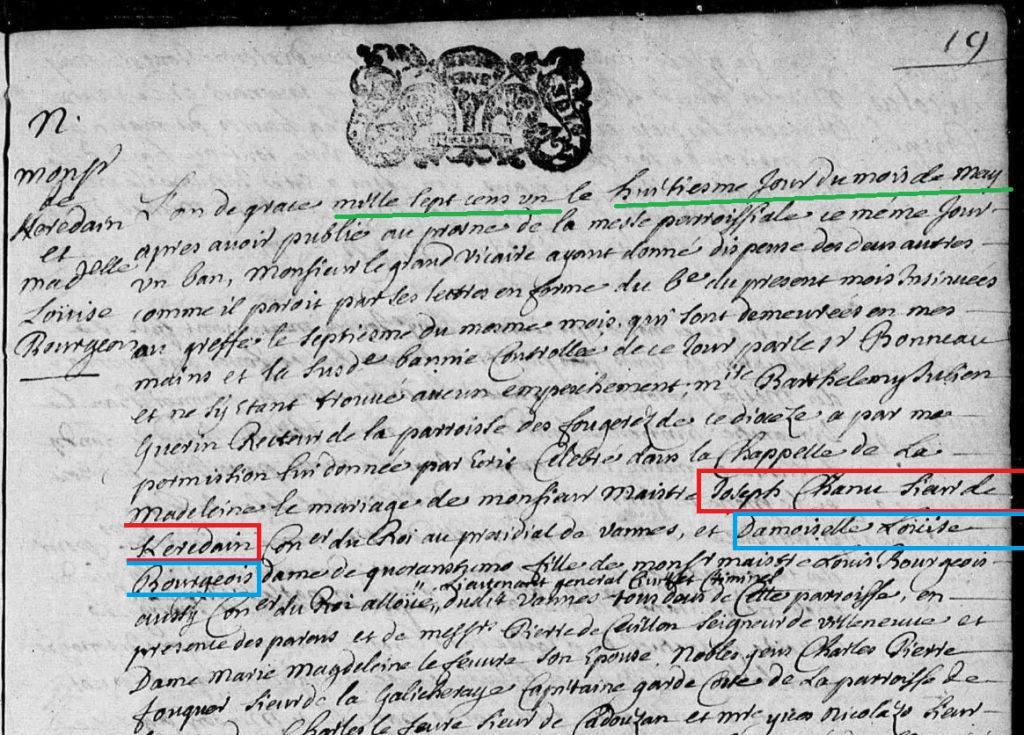 19
N.
monsr
de
Keredain
et
madelle
Loüise
Bourgeois
L'an de grace mille sept cens un le huitiesme Jour du mois de may
apres avoir publié au prosne de la messe parroissiale ce méme Jour
un ban, monsieur le grand vicaire ayant donné dispense des deux autres
comme il paroit par ses lettres en forme du 6e du present mois Insinuees
au greffe le septiesme du mesme mois, qui sont demeurées en mes
mains et la susde bannie Controllée de ce Jour par le sr Bonneau
et ne s'y estant trouvé aucun empeschement, mire Barthelemy Julien
Guerin Recteur de la parroisse des fougeréz de ce dioceze a par ma
permission luy donnée par Ecris Célébré dans la Chappelle de La
Madeleine le mariage de monsieur Maistre Joseph Chanu sieur de
Keredain Coner du Roi au presidial de vannes, et Damoiselle Loüise
Bourgeois dame de fille de monsr maistre Louis Bourgeois
aussy Coner du Roi alloüé, Lieutenant general Civil et Criminel
dudit vannes tous deux de Cette parroisse, en
presence des parens et de messire Pierre de seigneur de villeneuve et
Dame Marie Magdeleine le feuvre son Epouse, Nobles gens Charles Pierre
fouquer sieur de la Galicheraye Capitaine garde Coste de La parroisse de
Charles le feuvre sieur de Cadouzan et mre yves Nicolazo sieur